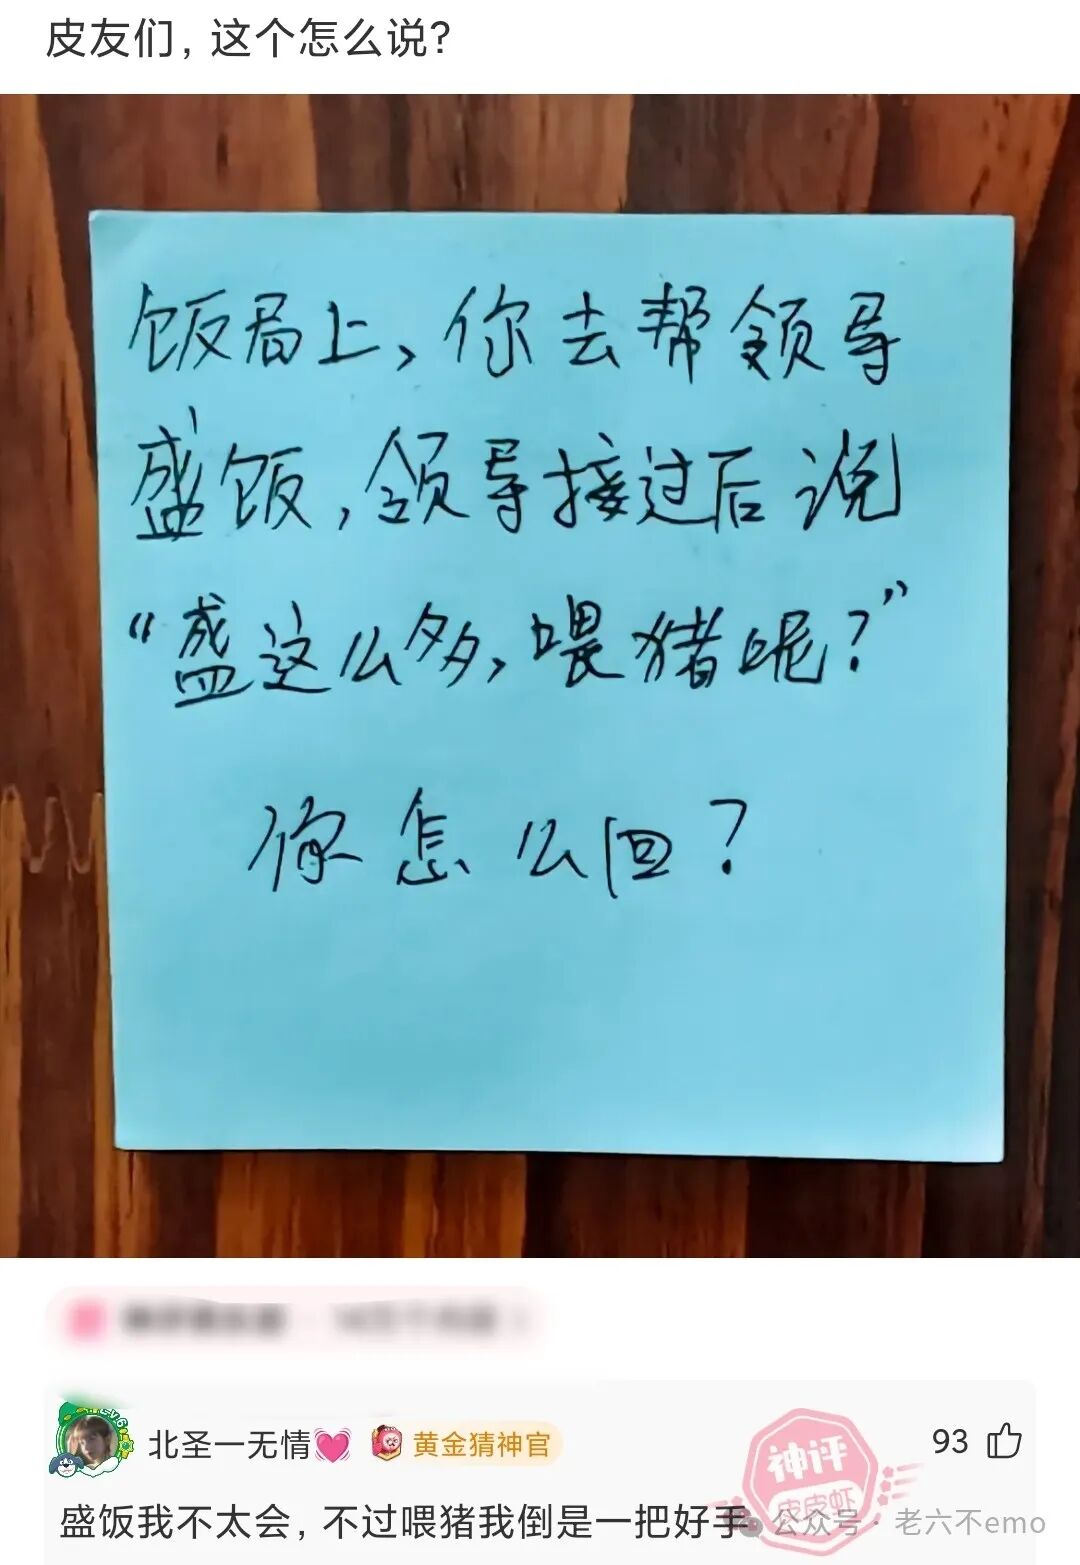 皮友们，这个怎么说？
饭局上，你去帮领导
盛饭，领导接过后说
“盛这么多，喂猪呢？”
你怎么回？
LV.6
北圣一无情
黄金猜神官
93
神评
皮皮虾
盛饭我不太会，不过喂猪我倒是一把好手
公众号·老六不emo